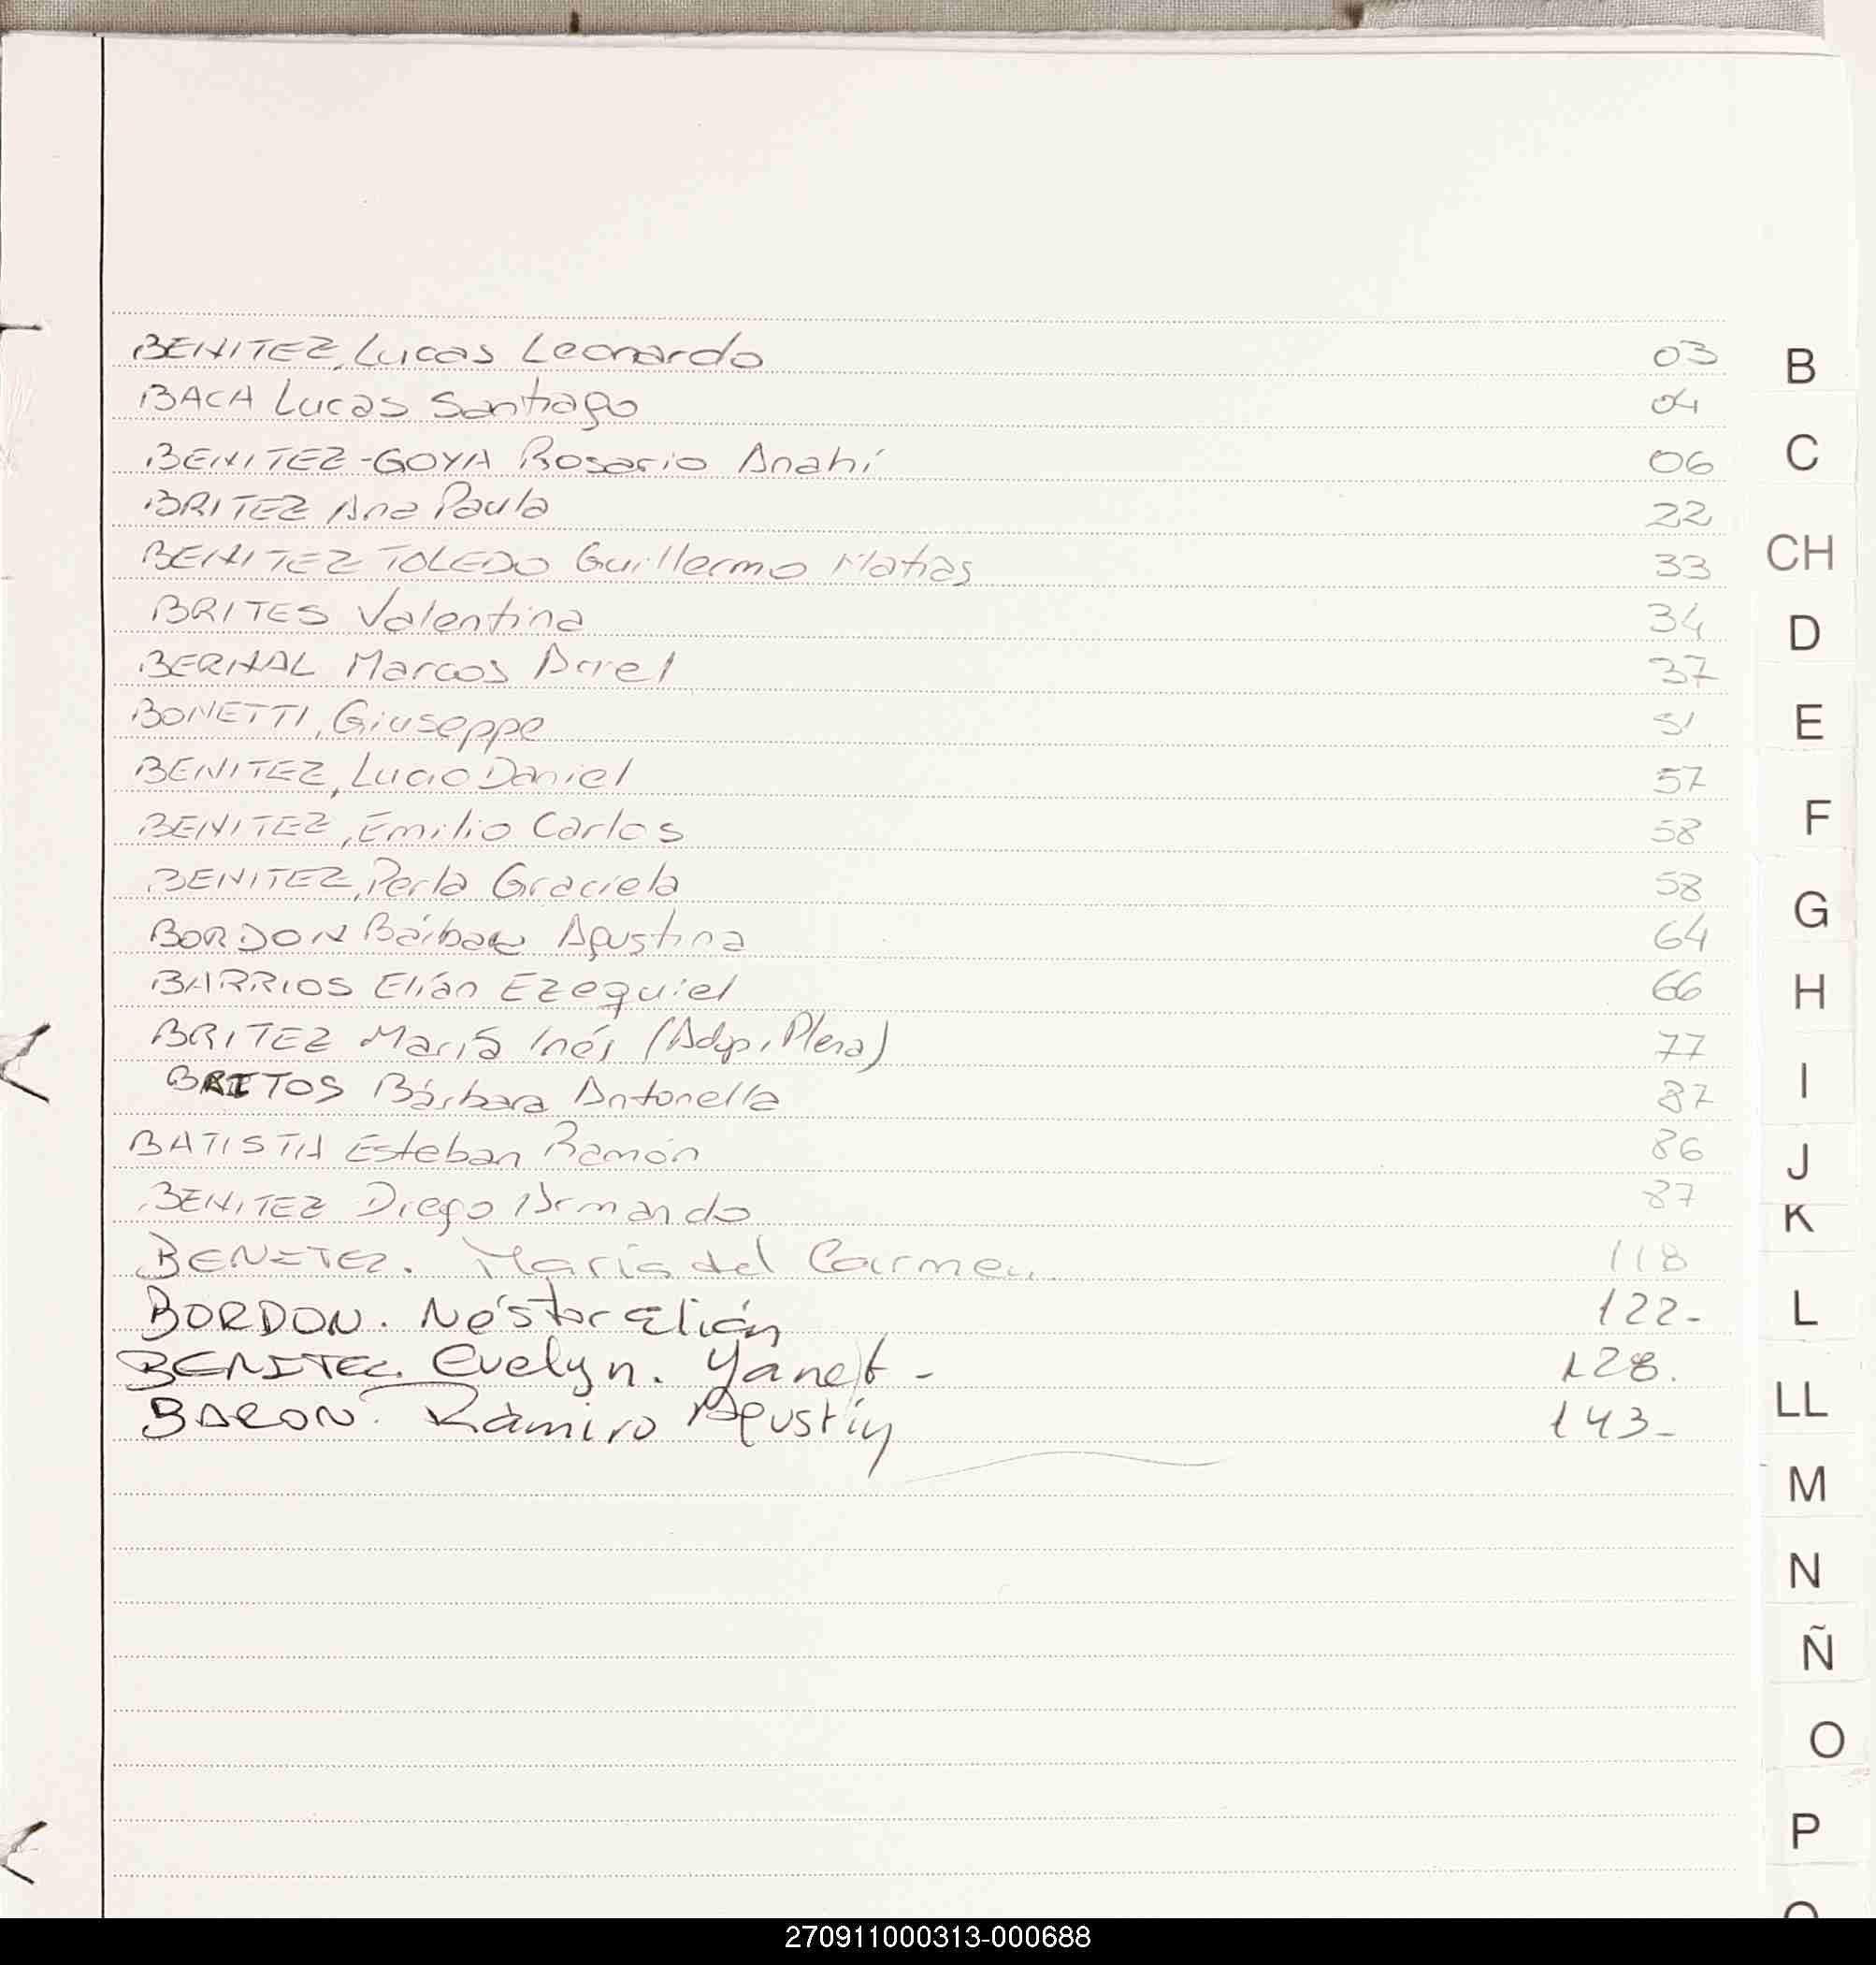 BENITEZ, Lucas Leonardo 03
BACA Lucas Santiago 04
BENITEZ-GOYA Rosario Anahí 06
BRITEZ Ana Paula 22
BENITEZ TOLEDO Guillermo Matias 33
BRITES Valentina 34
BERNAL Marcos Ariel 37
BONETTI, Giuseppe 51
BENITEZ, Lucio Daniel 57
BENITEZ, Emilio Carlos 58
BENITEZ, Perla Graciela 58
BORDON Bárbara Agustina 64
BARRIOS Elián Ezequiel 66
BRITEZ María Inés (Adop. Plena) 77
BRITOS Bárbara Antonella 87
BATISTA Esteban Ramón 86
BENITEZ Diego Armando 87
BENITEZ. María del Carmen 118
BORDON. Néstor Elián 122-
BENITEZ. Evelyn. Yanet - 128.
BARON. Ramiro Agustín 143-
B
C
CH
D
E
F
G
H
I
J
K
L
LL
M
N
Ñ
O
P
270911000313-000688